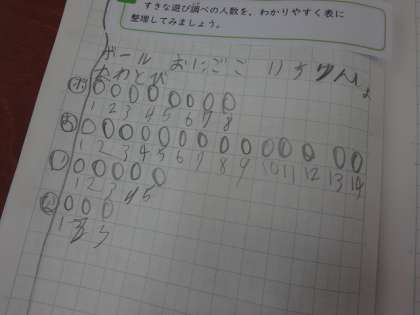 すきな遊び調べの人数を、わかりやすく表に
整理してみましょう。
ボール おにごこ いちりんしゃ
なわとび
ボ 〇〇〇〇〇〇〇〇
1 2 3 4 5 6 7 8
お 〇〇〇〇〇〇〇〇〇〇〇〇〇〇
1 2 3 4 5 6 7 8 9 10 11 12 13 14
い 〇〇〇〇〇
1 2 3 4 5
な 〇〇〇
1 2 3